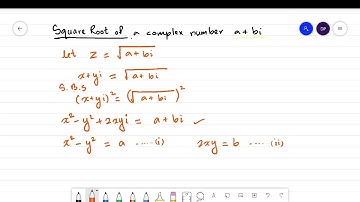 Square Root of a complex number a+bi
let z = √(a+bi)
x+yi = √(a+bi)
S.B.S
(x+yi)² = (√(a+bi))²
x² - y² + 2xyi = a+bi ✓
x² - y² = a ......(i) 2xy = b .....(ii)
DP